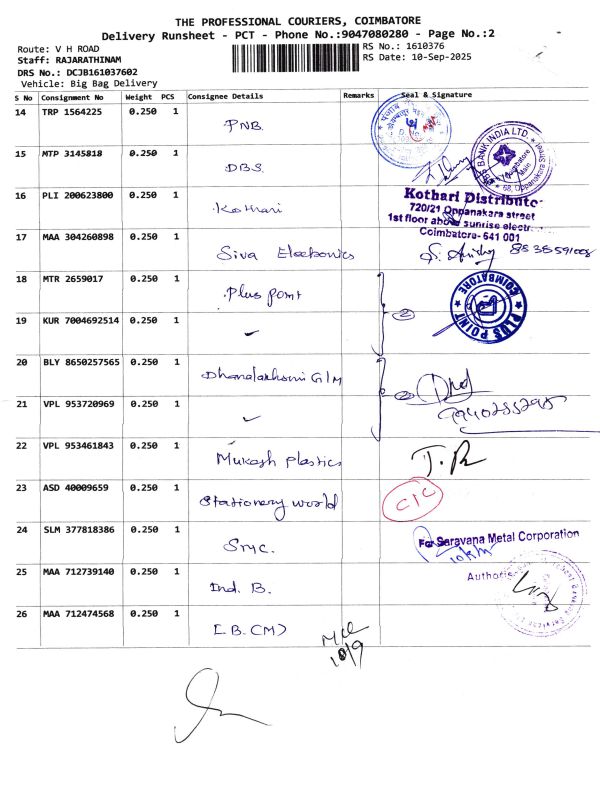 THE PROFESSIONAL COURIERS, COIMBATORE
Delivery Runsheet - PCT - Phone No.:9047080280 - Page No.:2
Route: V H ROAD
RS No.: 1610376
Staff: RAJARATHINAM
RS Date: 10-Sep-2025
DRS No.: DCJB161037602
Vehicle: Big Bag Delivery
S No Consignment No Weight PCS Consignee Details Remarks Seal & Signature
14 TRP 1564225 0.250 1 PNB.
15 MTP 3145818 0.250 1 DBS.
BANK INDIA LTD.
Coimbatore
Main
68, Oppanakara Street
16 PLI 200623800 0.250 1 Kothari
Kothari Distributo
720/21 Oppanakara street
1st floor above sunrise electr.
Coimbatore- 641 001
17 MAA 304260898 0.250 1 Siva Electronics
18 MTR 2659017 0.250 1 Plus point
PLUS POINT
COIMBATORE
19 KUR 7004692514 0.250 1 ✓
2
20 BLY 8650257565 0.250 1 Dhanalakshmi G/M
21 VPL 953720969 0.250 1 ✓
2
22 VPL 953461843 0.250 1 Mukesh plastics
23 ASD 40009659 0.250 1 Stationery world
C/C
24 SLM 377818386 0.250 1 Smc.
For Saravana Metal Corporation
25 MAA 712739140 0.250 1 Ind. B.
26 MAA 712474568 0.250 1 I.B.(M)
10/9